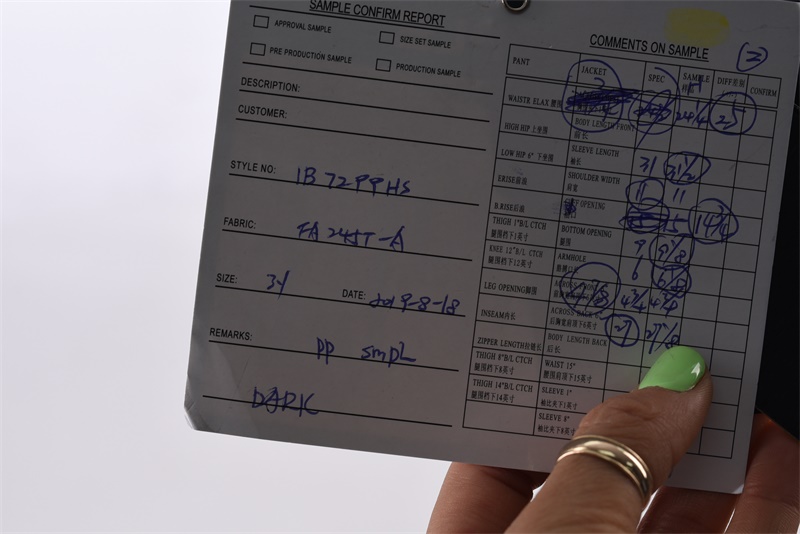 SAMPLE CONFIRM REPORT
APPROVAL SAMPLE
SIZE SET SAMPLE
PRE PRODUCTION SAMPLE
PRODUCTION SAMPLE
DESCRIPTION:
CUSTOMER:
STYLE NO: 1B7299HS
FABRIC: FA245T-A
SIZE: 31 DATE: 2019-8-18
REMARKS: PP SmpL
DARK
COMMENTS ON SAMPLE 2
PANT JACKET SPEC SAMPLE DIFF差别 CONFIRM
WAISTR ELAX腰围 24 1/4
HIGH HIP上坐围 BODY LENGTH FRONT 前长
LOW HIP 6" 下坐围 SLEEVE LENGTH 袖长 31 31 1/2
F.RISE前浪 SHOULDER WIDTH 肩宽 11 11
B.RISE后浪 OPENING 15 14 3/4
THIGH 1"B/L CTCH 腿围裆下1英寸 BOTTOM OPENING 9 9 1/8
KNEE 12"B/L CTCH 腿围裆下12英寸 ARMHOLE 6
LEG OPENING脚围 ACROSS 4 3/4
INSEAM内长 ACROSS BACK 后胸宽肩顶下6英寸 27
ZIPPER LENGTH拉链长 BODY LENGTH BACK 后长
THIGH 8"B/L CTCH 腿围裆下8英寸 WAIST 15" 腰围肩顶下15英寸
THIGH 14"B/L CTCH 腿围裆下14英寸 SLEEVE 1" 袖比夹下1英寸
SLEEVE 8" 袖比夹下8英寸